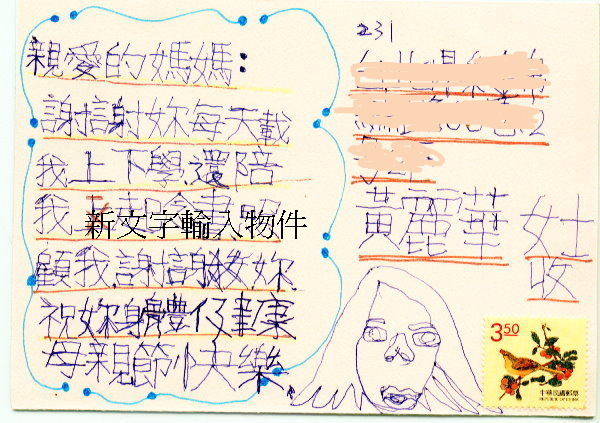 親愛的媽媽：
謝謝妳每天載
我上下學還陪
我上
新文字輸入物件
顧我，謝謝妳
祝妳身體健康
母親節快樂
231
黃麗華 女士
收
3.50
中華民國郵票
REPUBLIC OF CHINA